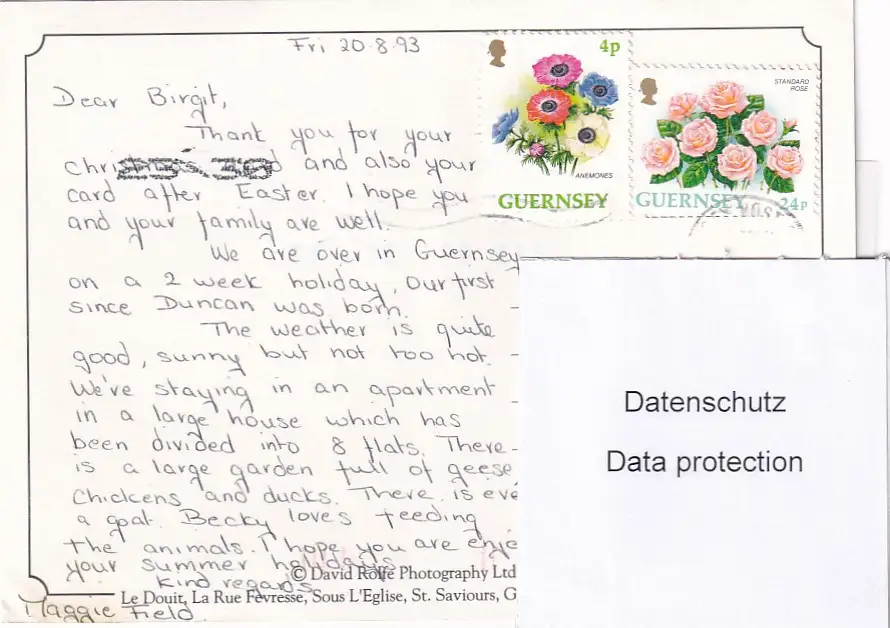 Fri 20.8.93
Dear Birgit,
Thank you for your
and also your
card after Easter. I hope you
and your family are well.
We are over in Guernsey
on a 2 week holiday, our first
since Duncan was born.
The weather is quite
good, sunny but not too hot.
We've staying in an apartment
in a large house which has
been divided into 8 flats. There
is a large garden full of geese
chickens and ducks. There is eve
a goat. Becky loves feeding
the animals. I hope you are enje
your summer holidays
Kind regards
Maggie Field
© David Rolfe Photography Ltd
Le Douit, La Rue Fevresse, Sous L'Eglise, St. Saviours, G
4p
ANEMONES
GUERNSEY
STANDARD
ROSE
GUERNSEY 24p
Datenschutz
Data protection